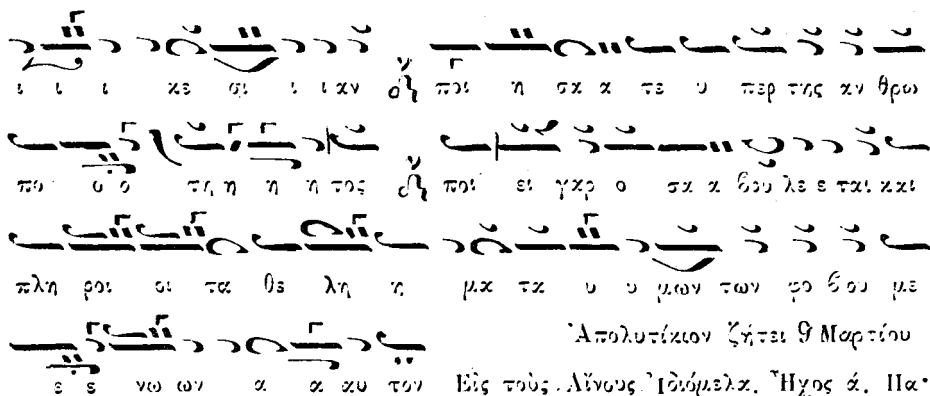 ι ι ι κε σι ι ι αν ποι η σα α τε υ περ της αν θρω
πο ο ο τη η η η τος ποι ει γαρ ο σα α βου λε ε ται και
πλη ροι οι τα θε λη η μα τα υ υ μων των φο βου με
ε ε νω ων α α αυ τον
Ἀπολυτίκιον ζήτει 9 Μαρτίου
Εἰς τοὺς Αἴνους Ἰδιόμελα. Ἦχος ά. Πα·